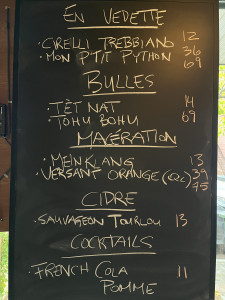 EN VEDETTE
·CIRELLI TREBBIANO 12
·MON P'TIT PYTHON 36
69
BULLES
·TÈT NAT 14
·TOHU BOHU 69
MACÉRATION
·MEINKLANG 13
·VERSANT ORANGE 39
45
CIDRE
·SAUVAGEON TOURLOU 13
COCKTAILS
·FRENCH COLA 11
POMME